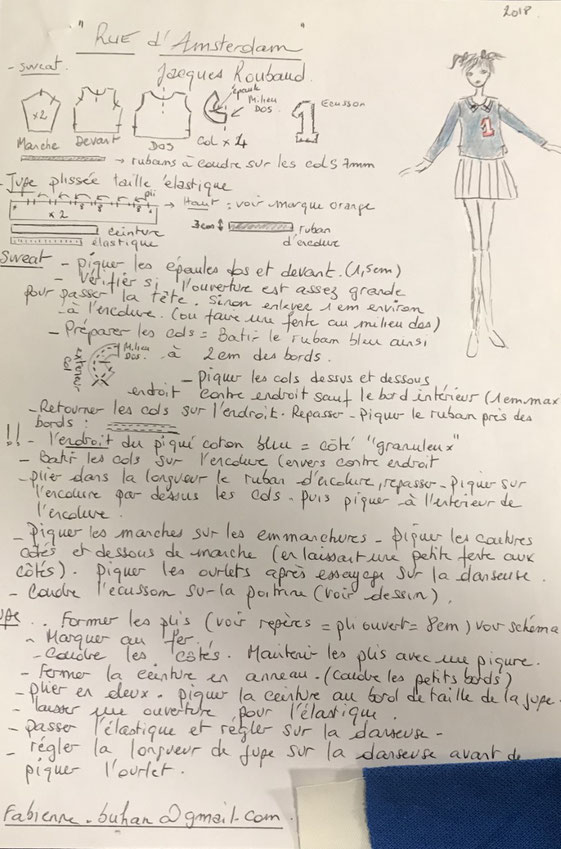 2018
"RUE d'Amsterdam"
Jacques Roubaud.
- sweat.
x2
épaule
Milieu
DOS.
Ecusson
1
Manche
Devant
DOS
COL x 4
→ rubans à coudre sur les cols 7mm
- Jupe plissée taille élastique
pli
8 8 8 8
x 2
→ Haut : voir marque orange
ceinture
élastique
3cm
ruban
d'encolure
Sweat - piquer les épaules dos et devant. (1,5cm)
- Vérifier si l'ouverture est assez grande
pour passer la tête. Sinon enlever 1 cm environ
à l'encolure. (ou faire une fente au milieu dos)
- Préparer les cols = Batir le ruban bleu ainsi
Milieu
DOS.
à 2cm des bords.
extérieur
col
- Piquer les cols dessus et dessous
endroit contre endroit sauf le bord intérieur (1cm.max
- Retourner les cols sur l'endroit. Repasser - Piquer le ruban près des
bords :
!! - l'endroit du piqué coton bleu = côté "granuleux"
- Batir les cols sur l'encolure (envers contre endroit
- plier dans la longueur le ruban d'encolure, repasser - Piquer sur
l'encolure par dessus les cols - puis piquer à l'intérieur de
l'encolure.
- Piquer les manches sur les emmanchures - Piquer les coutures
côtés et dessous de manche (en laissant une petite fente aux
côtés). Piquer les ourlets après essayage sur la danseuse.
- Coudre l'ecusson sur la poitrine (voir dessin).
upe . . Former les plis (voir repères = pli ouvert = 8cm) voir schéma
- Marquer au fer.
- Coudre les côtés. Maintenir les plis avec une piqure.
- Fermer la ceinture en anneau. (Coudre les petits bords)
- plier en deux. piquer la ceinture au bord de taille de la jupe.
- laisser une ouverture pour l'élastique.
- passer l'élastique et régler sur la danseuse -
- régler la longueur de jupe sur la danseuse avant de
piquer l'ourlet.
Fabienne.buhan@gmail.com.